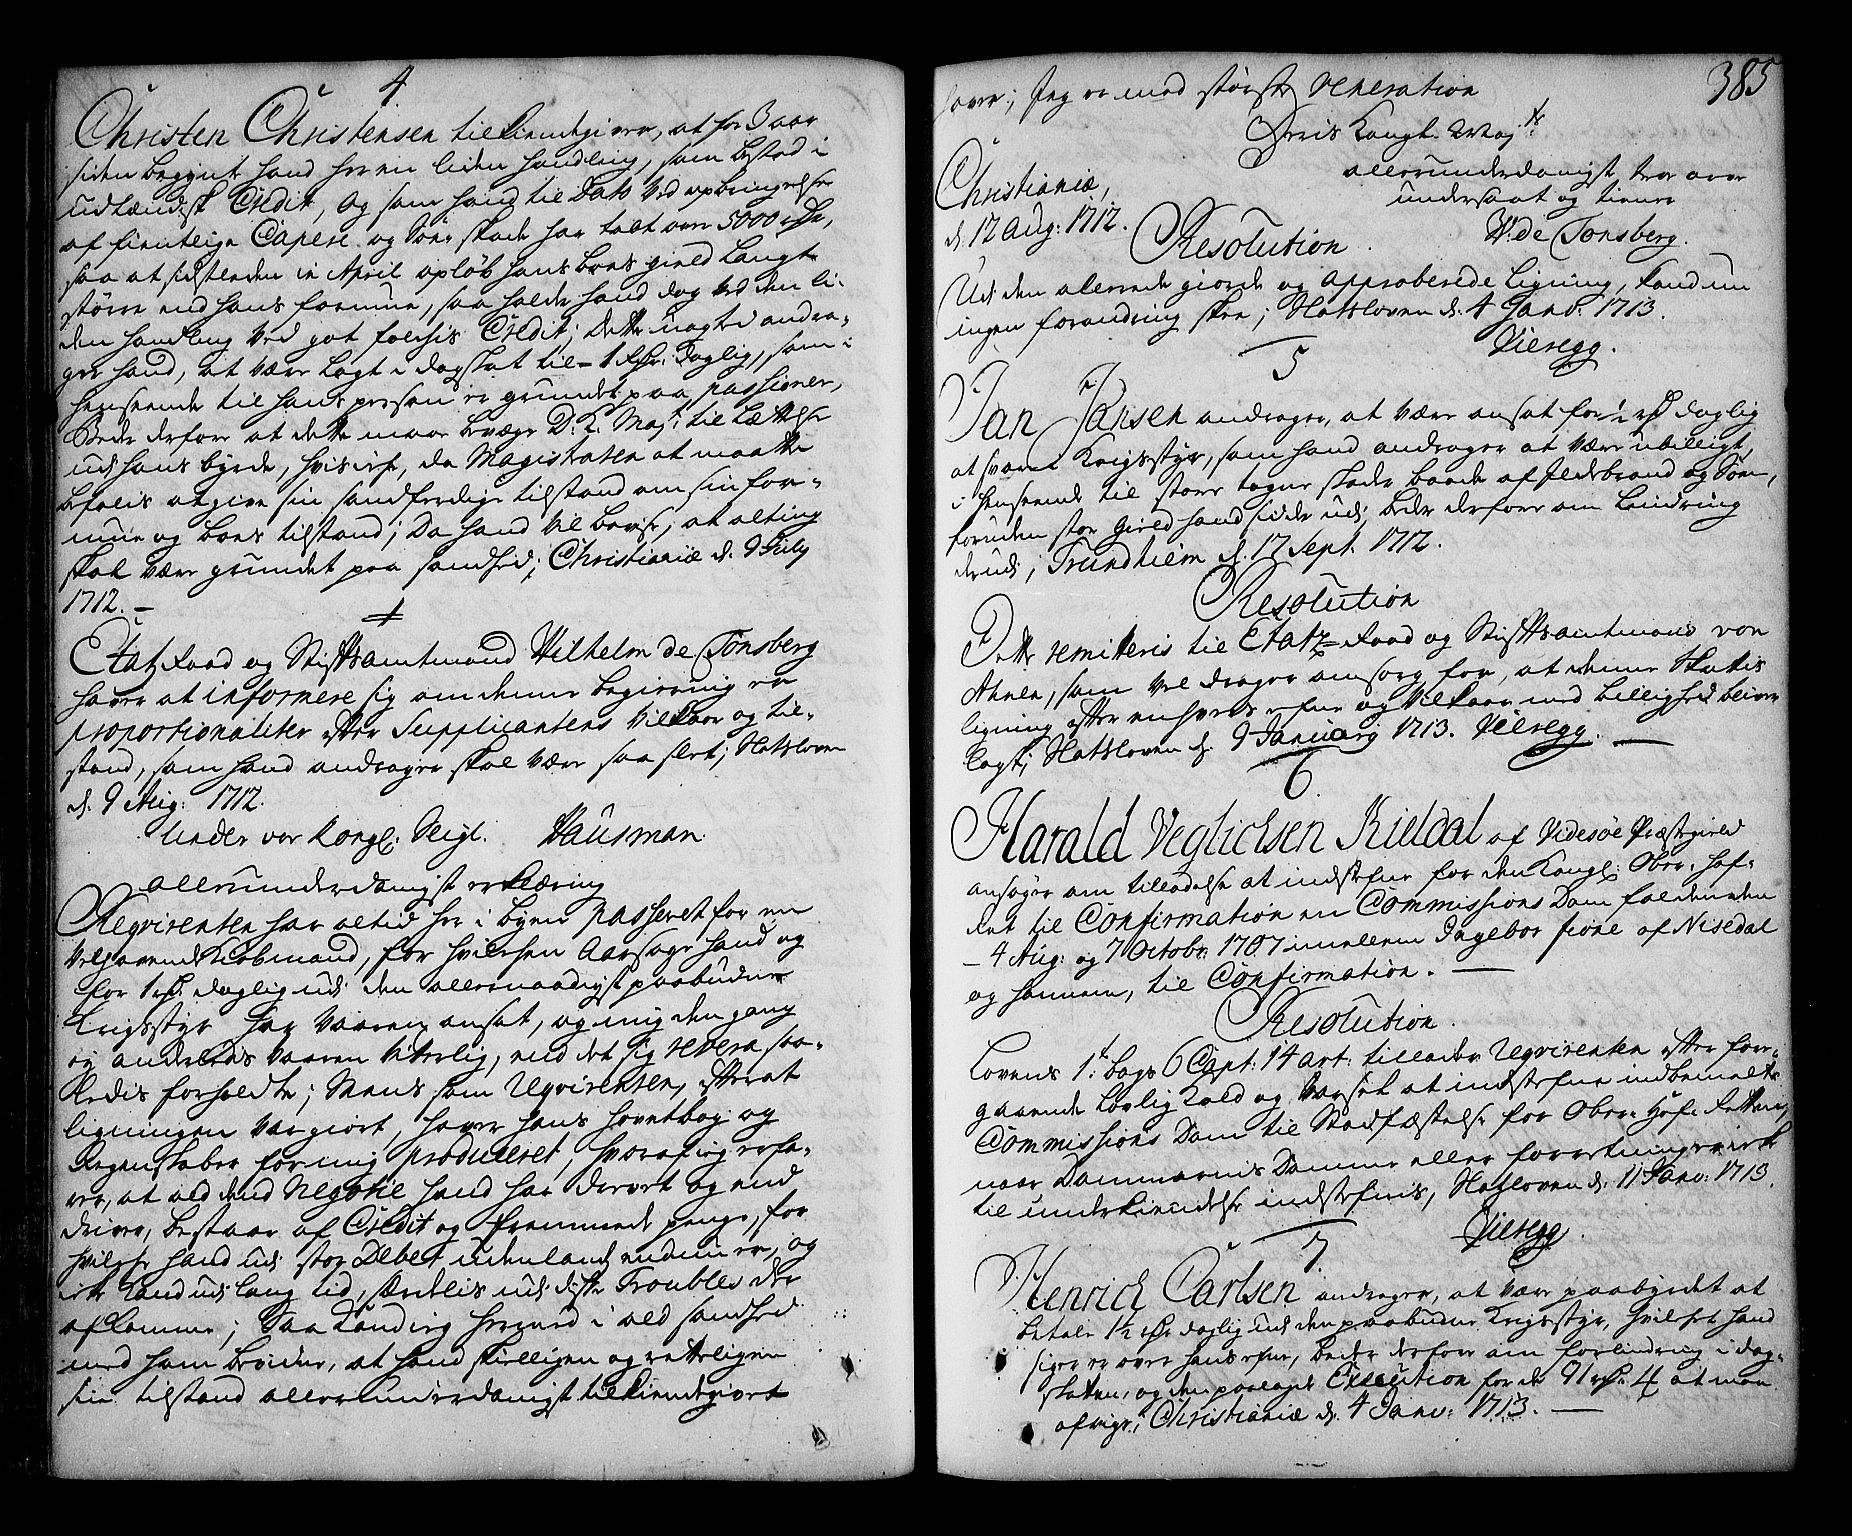 4.
Christen Christensen tilkiendegiver, at for 3 aar
siden begynte hand her en liden handling, som bestod i
udlændisk Credit, og som hand til dato ved opbringelse
af fientlige Capere og Søe skade har tabt over 5000 rdr,
saa at sidstleden in April opløb hans boes gield langt
større end hans formue, saa holder hand dog ved den li-
den handling ved got folchis Credit; dette uagted andra-
ger hand, at være lagt i dagskat til 1 rdr. daglig, som i
henseende til hans person er grundet paa passioner,
Beder derfore at dette maa bevæge D: K: Maj:t til lættelse
udi hans byrde, hvis icke, da Magistraten at maatte
befales at give sin sandferdige tilstand om sin for-
mue og boes tilstand; Da hand vil bevise, at alting
skal være grundet paa sandhed; Christianiæ d. 9 July
1712. —
Etatz Raad og Stiftsamtmand Wilhelm de Tonsberg
haver at informere sig om denne begiering er
proportionaliter efter Supplicantens vilkaar og til-
stand, som hand andrager skal være saa slet; Slotsloven
d. 9 Aug: 1712.
Under vor Kongl: Seigl. Hausman.
allerunderdanigst erklæring
Reqvirenten har altid her i byen passeret for en
velhavende Kiøbmand, for hvilchen Aarsage hand og
for 1 rdr. daglig udi den allernaadigst paabudne
Krigsstyr har vaaren ansat, og mig den gang
ey anderledis vaaren viterlig, end det sig revera saa-
ledis forholdte; Mens som Reqvirenten, efter at
ligningen var giort, haver hans hovetbog og
Regenskaber for mig produceret, hvoraf jeg erfa-
rer, at ald dend Negotie hand har drevet og end
driver, bestaar af Credit og fremmede penge, for
hvilche hand udi stor Debet udenlands endnu er, og
icke kand udi lang tid, særdelis udi disse Troubles der
afkomme; Saa kand jeg hermed i ald sandhed
med ham bevidne, at hand skielligen og rettelig en
sin tilstand allerunderdanigst tilkiendegivet
385
haver; Jeg er med største Veneration
Deris Kongl. May:ts
allerunderdanigst, tro over
undersaat og tienere
W: de Tonsberg.
Christianiæ,
d. 12 Aug: 1712.
Resolution.
Udi den allerede giorde og approberede ligning, kand nu
ingen forandring skee; Slotsloven d. 4 Janv: 1713.
Vieregg.
5
Jan Jansen andrager, at være ansat for ½ rdr daglig
at svare Krigsstyr, som hand andrager at være ubilligt,
i henseende til store tagne skade baade af Ildebrand og Søen,
foruden stor gield hand sidder udi; beder derfore om Lindring
derudi, Trundhiem d. 17 Sept. 1712.
Resolution
Dette remitteris til Etatz-Raad og Stiftsamtmand von
Ahnen, som vel drager omsorg for, at denne Skatis
ligning efter enhvers efne og vilkaar med billighed bliver
lagt; Slotsloven d. 9 Januarij 1713. Vieregg. —
6.
Harald Veglichsen Kieldal af Hvidesøe Præstegield
ansøger om tilladelse at indstefne for den Kongl: Ober-Hof-
Ret til Confirmation en Commissions Dom falden den
— 4 Aug: og 7 Octobr: 1707 imellem Ingebor fiøne af Nisedal
og hannem, til Confirmation. —
Resolution.
Lovens 1:t bogs 6 Capt: 14 art: tillader Reqvirenten efter fore-
gaaende lovlig Kald og Varsel at indstefne indbemelte
Commissions Dom til Stadfæstelse for Ober-Hof-Retten,
naar Dommernis Domme eller forretninger icke
til underkiendelse indstefnis, Slotsloven d: 11 Janv: 1713.
Vieregg.
7.
Henrich Carlsen andrager, at være paabyrdet at
betale 1½ rdr daglig udi den paabudne Krigsstyr, hvilchet hand
siger er over hans efne, beder derfore om forlindring i dag-
skatten, og den paalagde Execution for de 91 rdr. 4 at maa
afvige; Christianiæ d. 4 Janv: 1713. —